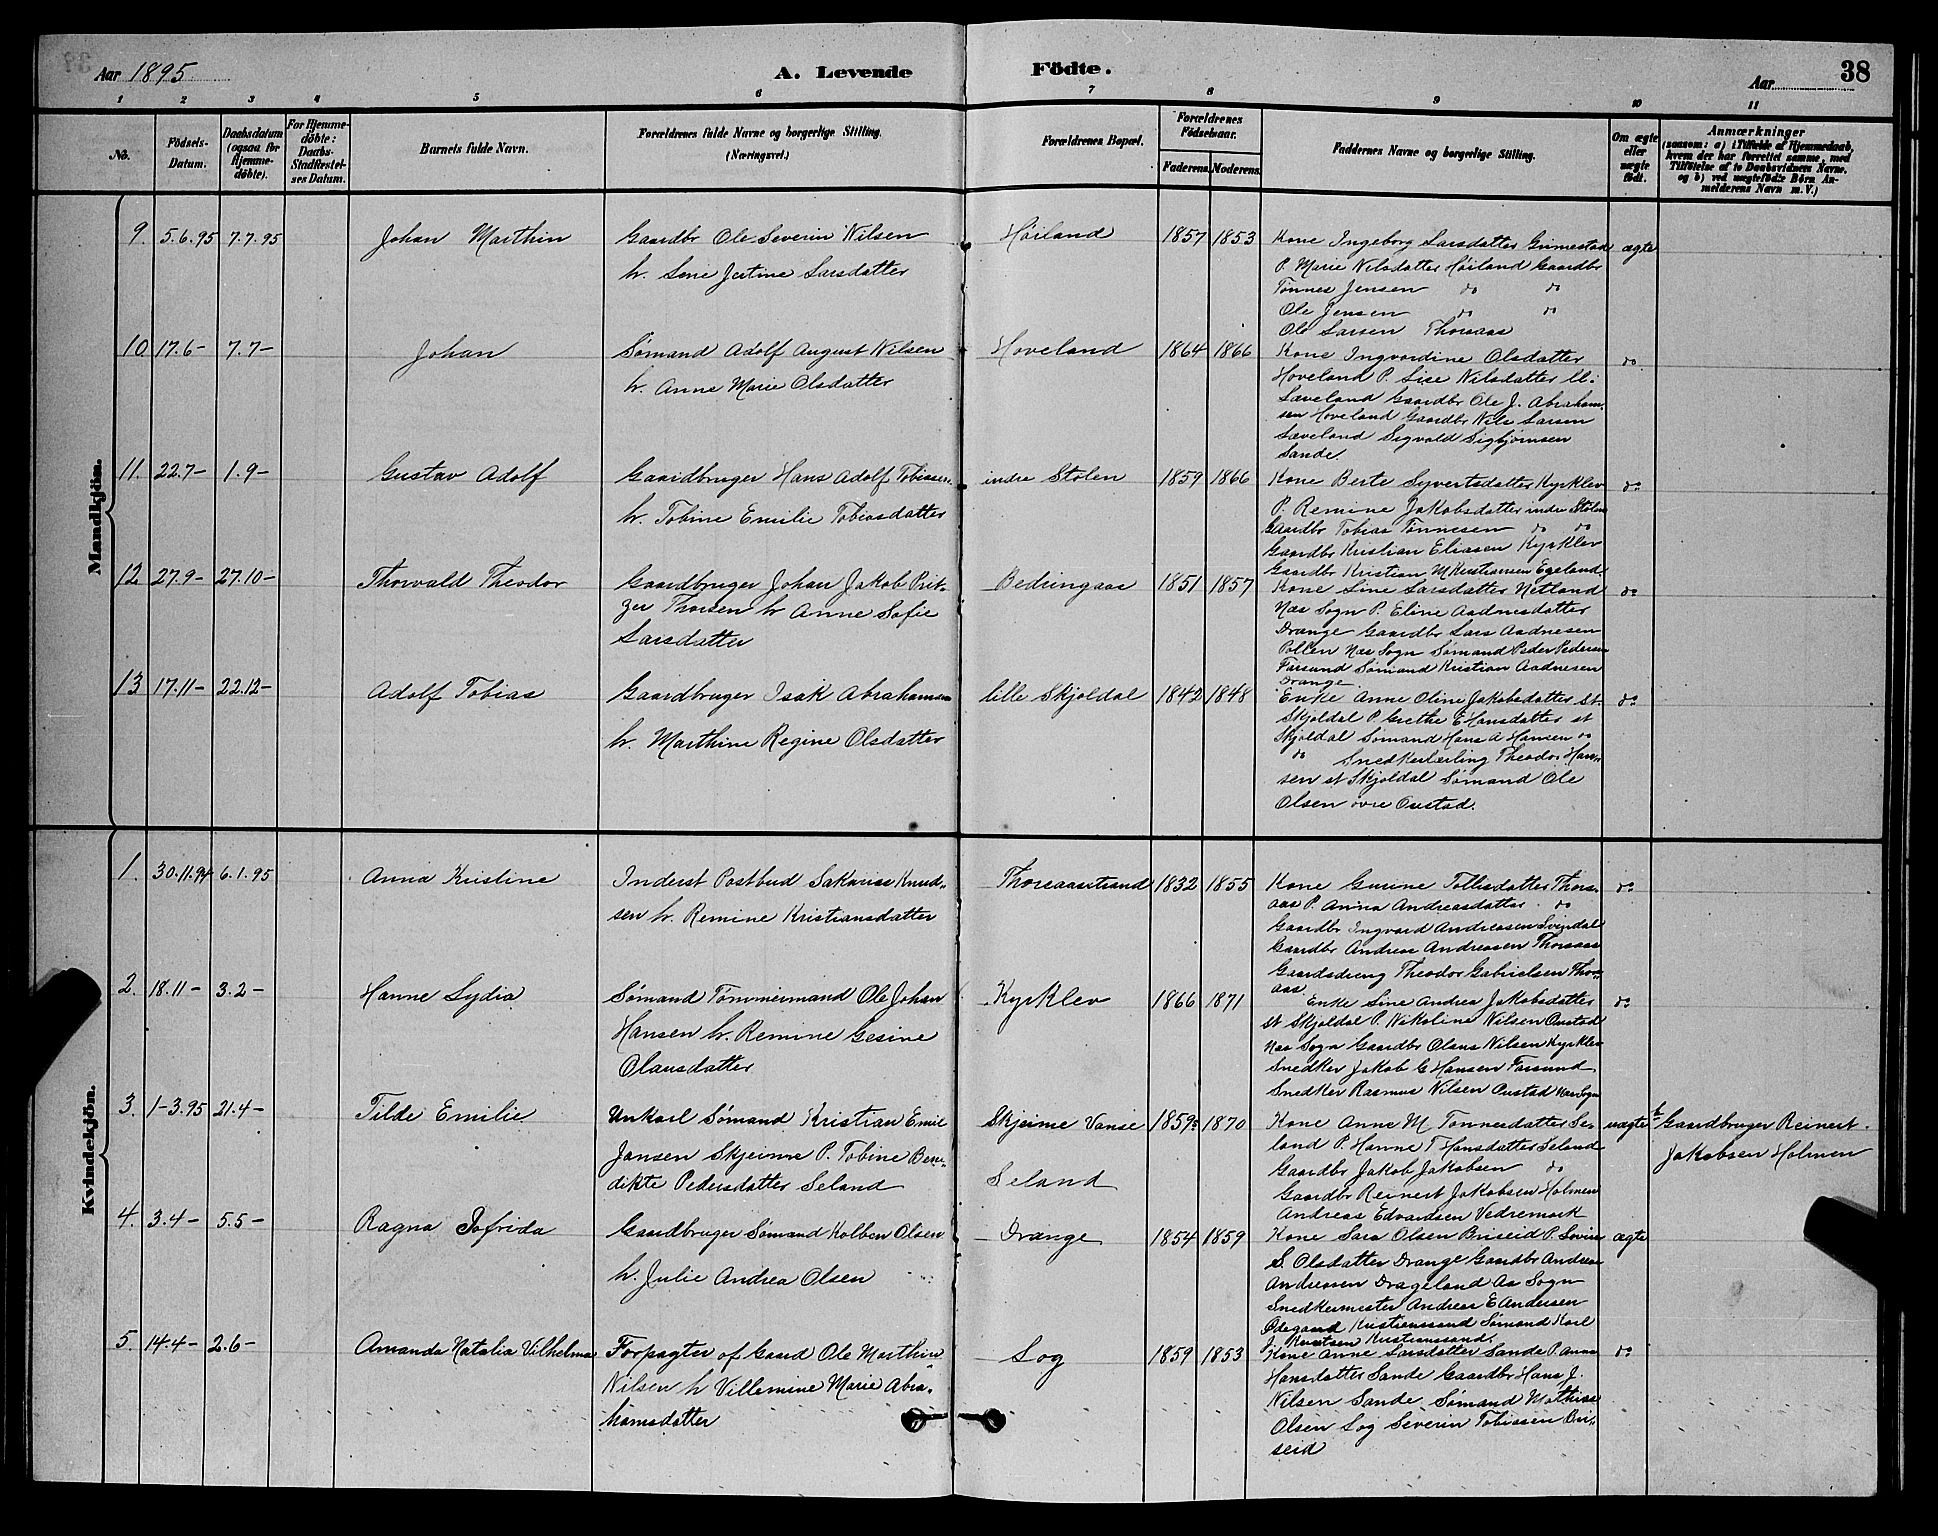 Aar 1895.
A. Levende Födte.
Aar
38
1 2 3 4 5 6 7 8 9 10 11
No.
Födsels-Datum.
Daabsdatum (ogsaa for Hjemme-döbte).
For Hjemme-döbte: Daabs-Stadfæstel-ses Datum.
Barnets fulde Navn.
Forældrenes fulde Navne og borgerlige Stilling. (Næringsvei.)
Forældrenes Bopæl.
Forældrenes Födselsaar.
Faderens. Moderens.
Faddernes Navne og borgerlige Stilling.
Om ægte eller uægte födt.
Anmærkninger
(saasom: a) i Tilfælde af Hjemmedaab, hvem der har forrettet samme, med Tilföielse af to Daabsvidners Navne, og b) ved uægtefödte Börn An-melderens Navn m. V.)
Mandkjön.
9. 5.6.95 7.7.95 Johan Marthin
Gaardbr Ole Severin Nilsen
h. Sine Jestine Larsdatter
Høiland 1857 1853
Kone Ingeborg Larsdatter Grimestad ægte
P. Marie Nilsdatter Høiland Gaardbr
Tønnes Jensen do do
Ole Jensen do do
Ole Larsen Thorsaas
10 17.6- 7.7- Johan
Sømand Adolf August Nilsen
h. Anne Marie Olsdatter
Hoveland 1864 1866
Kone Ingvardine Olsdatter do
Hoveland P. Lise Nilsdatter
Sæveland Gaardbr Ole J. Abraham-
sen Hoveland Gaardbr Nils Larsen
Sæveland Sigvald Sigbjørnsen
Sande.
11. 22.7- 1.9- Gustav Adolf
Gaardbruger Hans Adolf Tobiassen
h. Tobine Emilie Tobiasdatter
indre Stølen 1859 1866
Kone Berte Syvertsdatter Kyrklev do
P. Remine Jakobsdatter indre Stølen
Gaardbr Tobias Tønnesen do do
Gaardbr Kristian Eliasen Kyrklev
Gaardbr Kristian M Kristiansen Egeland.
12 27.9- 27.10- Thorvald Theodor
Gaardbruger Johan Jakob Prit-
zer Thorsen h. Anne Sofie
Larsdatter
Bedringaas 1851 1857
Kone Sine Larsdatter Netland do
Næs Sogn P. Eline Aadnesdatter
Drange Gaardbr Lars Aadnesen
Pollen Næs Sogn Sømand Peder Pedersen
Farsund Sømand Kristian Aadnesen
Drange
13 17.11- 22.12- Adolf Tobias
Gaardbruger Isak Abrahamsen
h. Marthine Regine Olsdatter
lille Skjoldal 1842 1848
Enke Anne Oline Jakobsdatter st. do
Skjoldal P. Grethe E Hansdatter st
Skjoldal Sømand Hans A Hansen do
do Snedkerlærling Theodor Han-
sen st Skjoldal Sømand Ole
Olsen øvre Oustad.
Kvindekjön.
1. 30.11.94 6.1.95 Anna Kristine
Inderst Postbud Sakarias Knud-
sen h. Remine Kristiansdatter
Thorsaasstrand 1832 1855
Kone Gurine Tollisdatter Thors- do
aas P. Anna Andreasdatter do
Gaardbr Ingvard Andreasen Svindal
Gaardbr Andreas Andreasen Thorsaas
Gaardsdreng Theodor Gabrielsen Thors-
aas
2. 18.11- 3.2- Hanne Lydia
Sømand Tømmermand Ole Johan
Hansen h. Remine Gesine
Olausdatter
Kyrklev 1866 1871
Enke Sine Andrea Jakobsdatter do
st Skjoldal P. Nikoline Nilsen Oustad
Næs Sogn Gaardbr Olaus Nilsen Kyrklev
Snedker Jakob C Hansen Farsund
Snedker Rasmus Nilsen Oustad Næs Sogn
3. 1-3.95 21.4- Tilde Emilie
Unkarl Sømand Kristian Emil
Jansen Skjeime P. Tobine Bene-
dikte Pedersdatter Seland
Skjeime Vanse
Seland
1859 1870
Kone Anne M Tønnesdatter Se- uægte
land P. Hanne T Hansdatter Seland
Gaardbr Jakob Jakobsen do
Gaardbr Reinert Jakobsen Holmen
Andreas Edvardsen Vedremork
b Gaardbruger Reinert
Jakobsen Holmen
4. 3.4- 5.5- Ragna Tofrida
Gaardbruger Sømand Kolben Olsen
h. Julie Andrea Olsen
Drange 1854 1859
Kone Sara Olsen Briseid P. Sovine ægte
S. Olsdatter Drange Gaardbr Andreas
Andreasen Drageland Aa Sogn
Snedkermester Andreas E Andersen
Ødegaard Kristianssand Sømand Karl
J Knutsen Kristianssand.
5. 14.4- 2.6- Amanda Natalia Vilhelma
Forpagter of Gaard Ole Marthin
Nilsen h Villemine Marie Abra-
hamsdatter
Log 1859 1853
Kone Anne Larsdatter Sande P. Anna do
Hansdatter Sande Gaardbr Hans J.
Nilsen Sande Sømand Mathias
Olsen Log Severin Tobiassen Bri-
seid